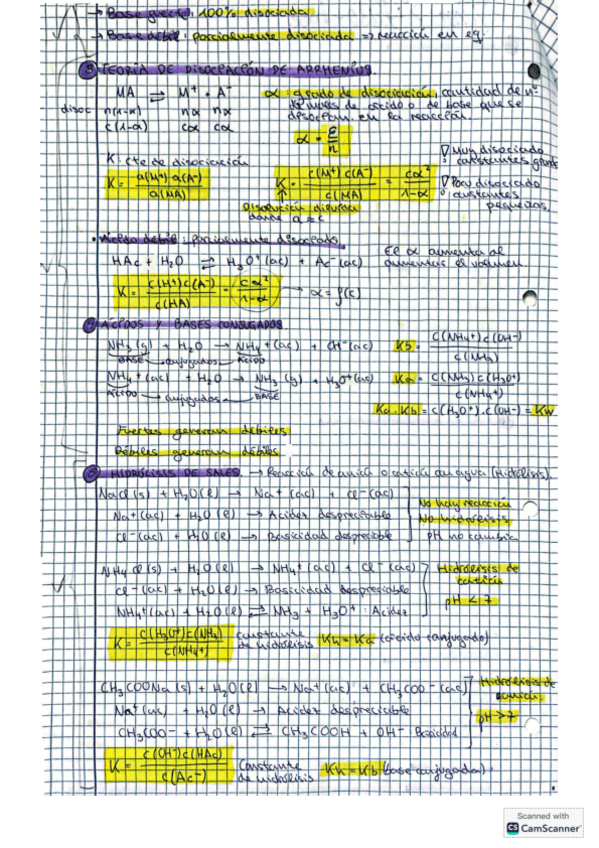 → Base fuerte: 100% disociada
→ Base débil: parcialmente disociada => reacción en eq.
③ TEORÍA DE DISOCIACIÓN DE ARRHENIUS.
MA ⇌ M⁺ + A⁻
α: grado de disociación, cantidad de nº
disoc n(1-α) nα nα
de moles de ácido o de base que se
c(1-α) cα cα
disocian en la reacción.
α =
K: cte de disociación
K = a(M⁺) a(A⁻) / a(MA)
K = c(M⁺) c(A⁻) / c(MA) = cα² / 1-α
Muy disociado
constantes grandes
Poco disociado
constantes
pequeñas.
Disolución diluida
donde a ≈ c
• Ácido débil: parcialmente disociado.
HAc + H₂O ⇌ H₃O⁺(ac) + Ac⁻(ac)
El α aumenta al
aumentar el volumen
K = c(H⁺) c(A⁻) / c(HA) = cα² / 1-α → α = f(c)
④ ÁCIDOS Y BASES CONJUGADOS.
NH₃(g) + H₂O → NH₄⁺(ac) + OH⁻(ac)
Kb = c(NH₄⁺) c(OH⁻) / c(NH₃)
BASE conjugados ÁCIDO
NH₄⁺(ac) + H₂O → NH₃(g) + H₃O⁺(ac)
Ka = c(NH₃) c(H₃O⁺) / c(NH₄⁺)
ÁCIDO conjugados BASE
Ka · Kb = c(H₃O⁺) · c(OH⁻) = Kw
Fuertes generan débiles
Débiles generan débiles
⑤ HIDRÓLISIS DE SALES. → Reacción de anión o catión con agua (Hidrólisis).
NaCl(s) + H₂O(l) → Na⁺(ac) + Cl⁻(ac)
Na⁺(ac) + H₂O(l) → Acidez despreciable
Cl⁻(ac) + H₂O(l) → Basicidad despreciable
No hay reacción
No hidrólisis
pH no cambia
NH₄Cl(s) + H₂O(l) → NH₄⁺(ac) + Cl⁻(ac)
Cl⁻(ac) + H₂O(l) → Basicidad despreciable
NH₄⁺(ac) + H₂O(l) ⇌ NH₃ + H₃O⁺ Acidez
Hidrólisis de
catión
pH < 7
K = c(H₃O⁺) c(NH₃) / c(NH₄⁺) constante de hidrólisis Kh = Ka (ácido conjugado)
CH₃COONa(s) + H₂O(l) → Na⁺(ac) + CH₃COO⁻(ac)
Na⁺(ac) + H₂O(l) → Acidez despreciable
CH₃COO⁻ + H₂O(l) ⇌ CH₃COOH + OH⁻ Basicidad
Hidrólisis de
anión.
pH > 7
K = c(OH⁻) c(HAc) / c(Ac⁻) Constante de hidrólisis Kh = Kb (base conjugada).
Scanned with
CS CamScanner